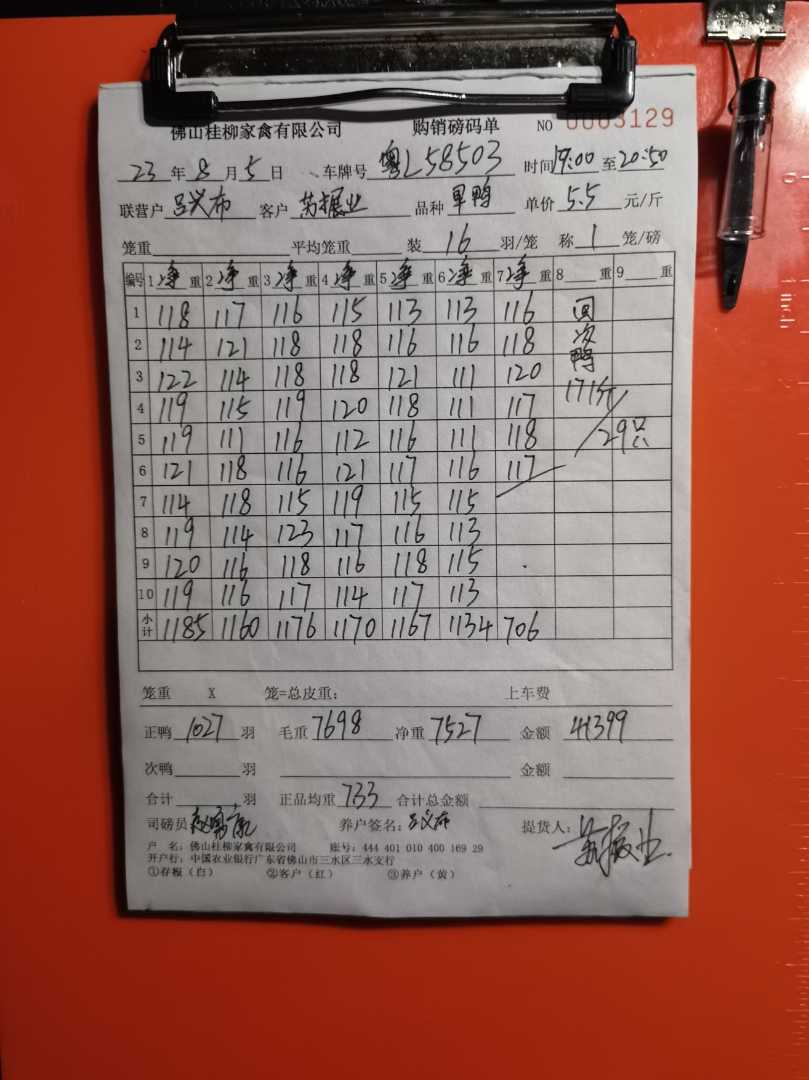 佛山桂柳家禽有限公司 购销磅码单 NO 0003129
23 年 8 月 5 日 车牌号 粤L58503 时间 19:00 至 20:50
联营户 吕兴布 客户 苏振业 品种 单鸭 单价 5.5 元/斤
笼重 平均笼重 装 16 羽/笼 称 1 笼/磅
编号 1 净 重 2 净 重 3 净 重 4 净 重 5 净 重 6 净 重 7 净 重 8 重 9 重
1 118 117 116 115 113 113 116 回
2 114 121 118 118 116 116 118 次鸭
3 122 114 118 118 121 111 120
4 119 115 119 120 118 111 117 171斤
5 119 111 116 112 116 111 118 29只
6 121 118 116 121 117 116 117
7 114 118 115 119 115 115
8 119 114 123 117 116 113
9 120 116 118 116 118 115
10 119 116 117 114 117 113
小计 1185 1160 1176 1170 1167 1134 706
笼重 X 笼=总皮重: 上车费
正鸭 1027 羽 毛重 7698 净重 7527 金额 41399
次鸭 羽 金额
合计 羽 正品均重 733 合计总金额
司磅员 养户签名: 提货人: 苏振业
户 名: 佛山桂柳家禽有限公司 账号: 444 401 010 400 169 29
开户行: 中国农业银行广东省佛山市三水区三水支行
①存根(白) ②客户(红) ③养户(黄)